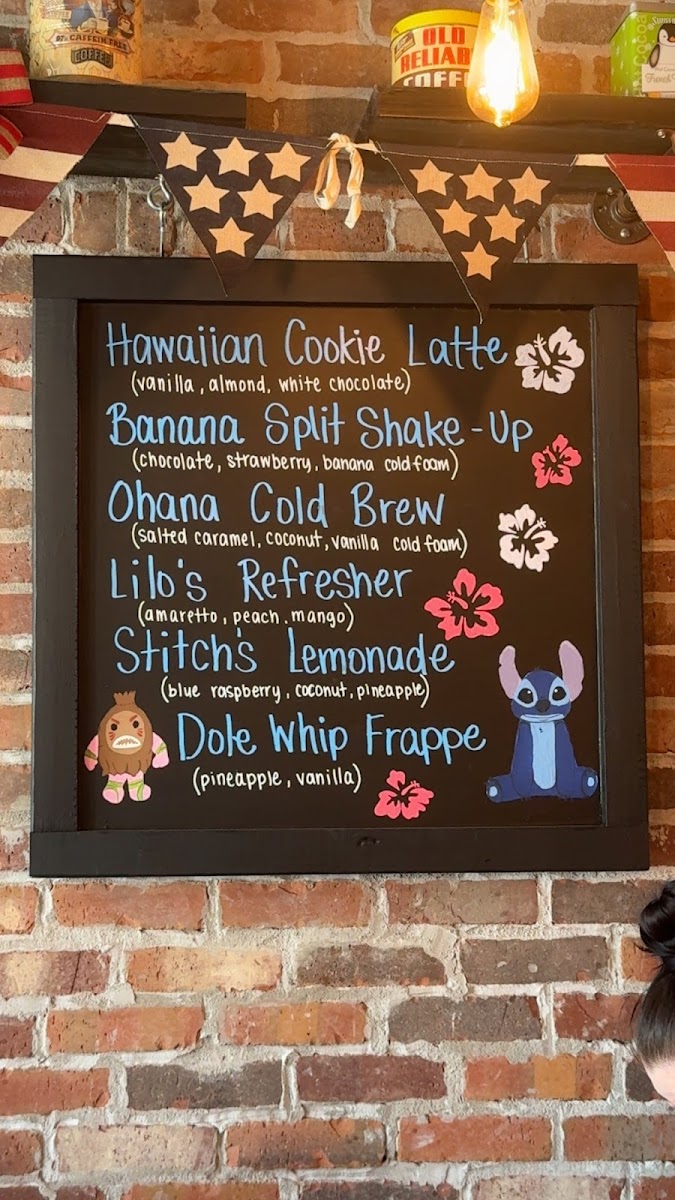 97% CAFFEIN FREE
COFFEE
OLD
RELIABLE
COFFEE
Hawaiian Cookie Latte
(vanilla, almond, white chocolate)
Banana Split Shake-Up
(chocolate, strawberry, banana cold foam)
Ohana Cold Brew
(salted caramel, coconut, vanilla cold foam)
Lilo's Refresher
(amaretto, peach, mango)
Stitch's Lemonade
(blue raspberry, coconut, pineapple)
Dole Whip Frappe
(pineapple, vanilla)